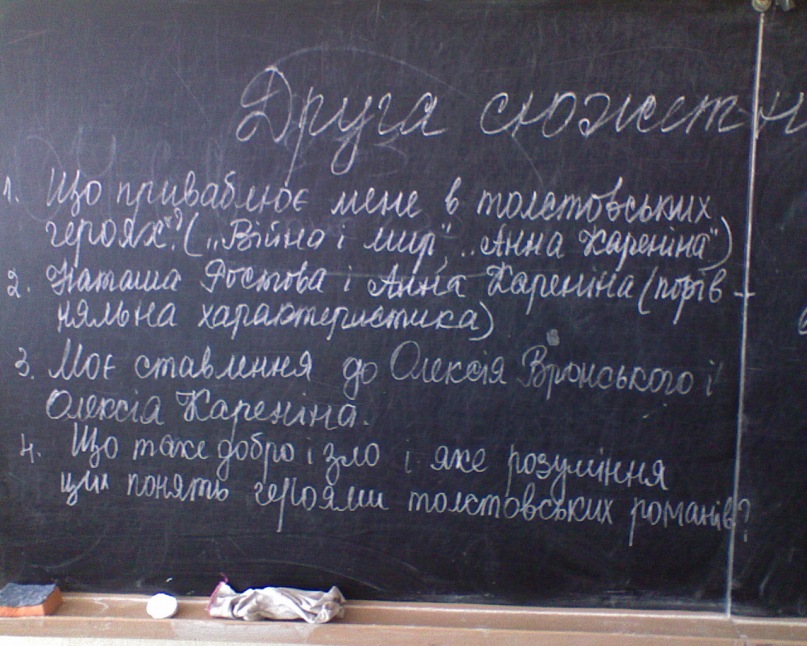 Друга сюжетн
1. Що приваблює мене в толстовських
героях? („Війна і мир", „Анна Кареніна")
2. Наташа Ростова і Анна Кареніна (порів-
няльна характеристика)
3. Моє ставлення до Олексія Вронського і
Олексія Кареніна.
4. Що таке добро і зло і яке розуміння
цих понять героями толстовських романів?